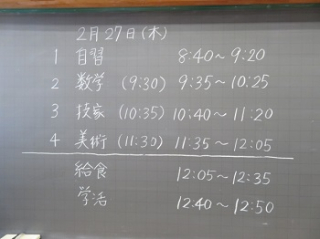 2月27日(木)
1 自習 8:40~9:20
2 数学 (9:30) 9:35~10:25
3 技家 (10:35) 10:40~11:20
4 美術 (11:30) 11:35~12:05
給食 12:05~12:35
学活 12:40~12:50